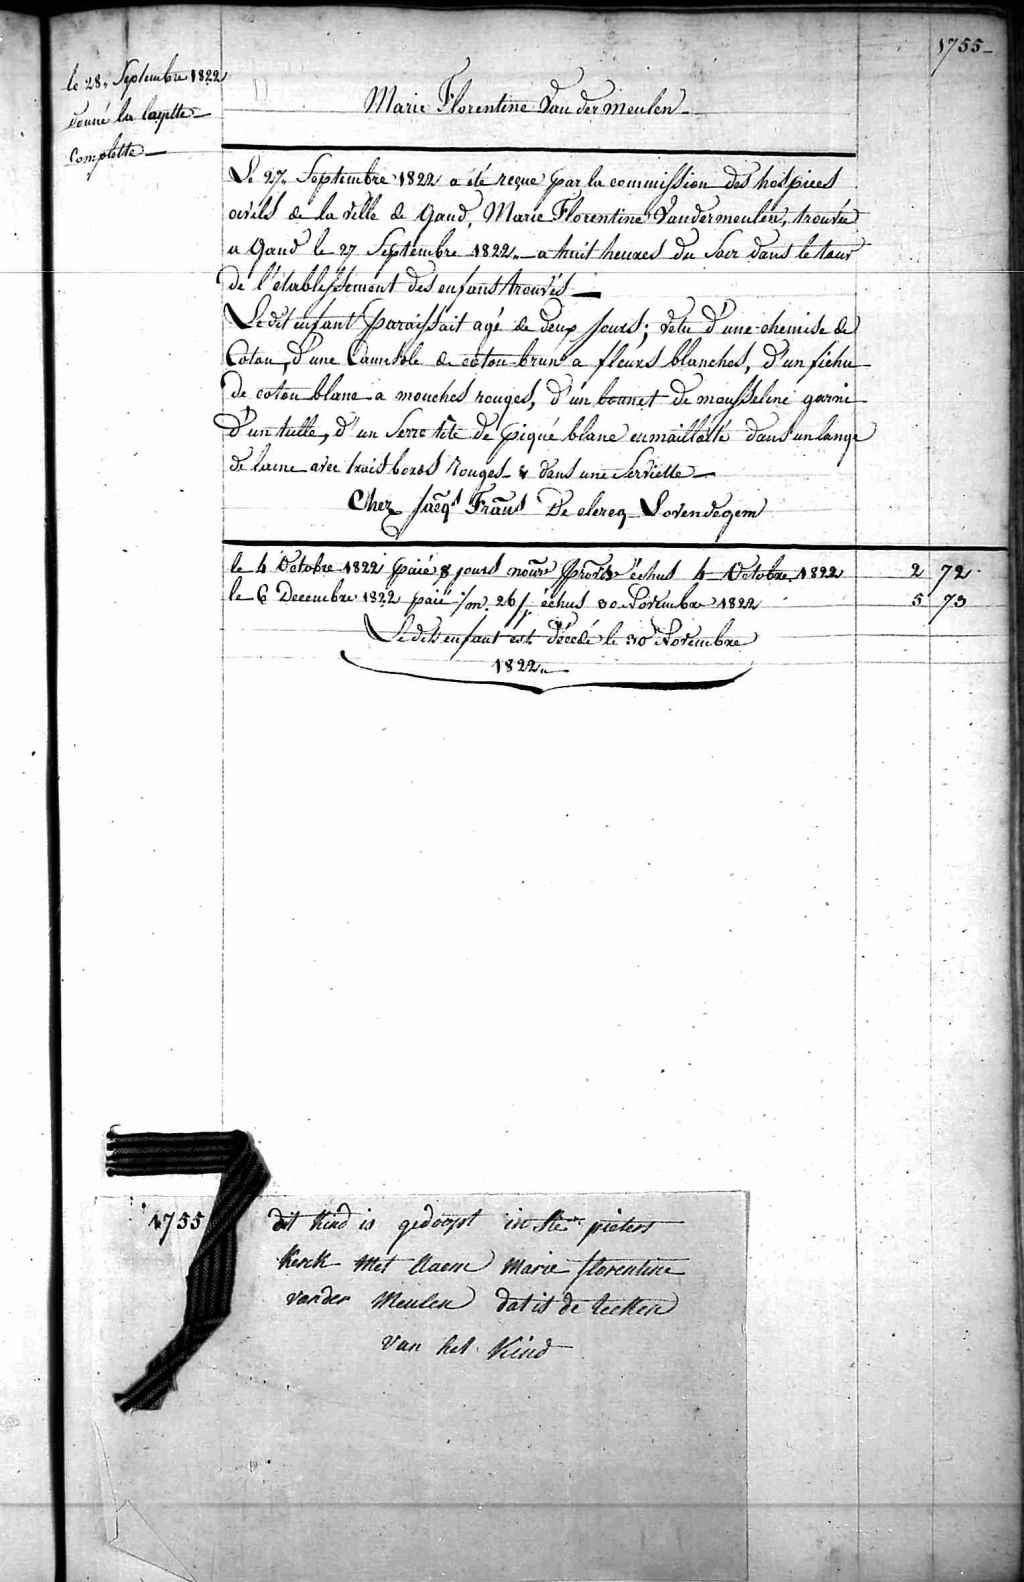 1755
le 28. Septembre 1822
donné la layette
Complette
Marie Florentine Vandermeulen
Le 27. Septembre 1822 a été reçue par la commission des hospices
civils de la ville de Gand, Marie Florentine Vandermeulen, trouvée
a Gand le 27 Septembre 1822. a huit heures du Soir dans le tour
de l'établissement des enfans trouvés
Le dit enfant paraissait agé de deux jours; vetu d'une chemise de
Coton, d'une Camisole de coton brun a fleurs blanches, d'un fichu
de coton blanc a mouches rouges, d'un bonnet de mousseline garni
d'un tulle, d'un Serre tête de piqué blanc emmaillotté dans un lange
de laine avec trois bords Rouges & dans une Serviette
Chez Jacqs Frans De clercq Lovendegem
le 4 Octobre 1822 paié 8 jours nourre échus 4 Octobre 1822 2 72
le 6 Decembre 1822 paié 26/. échus 30 Novembre 1822 5 73
Le dit enfant est décédé le 30 Novembre
1822.
1755
dit Kind is gedoopt in Ste pieters
Kerck Met Naem Marie florentine
vander Meulen dat is de teeken
van het Kind